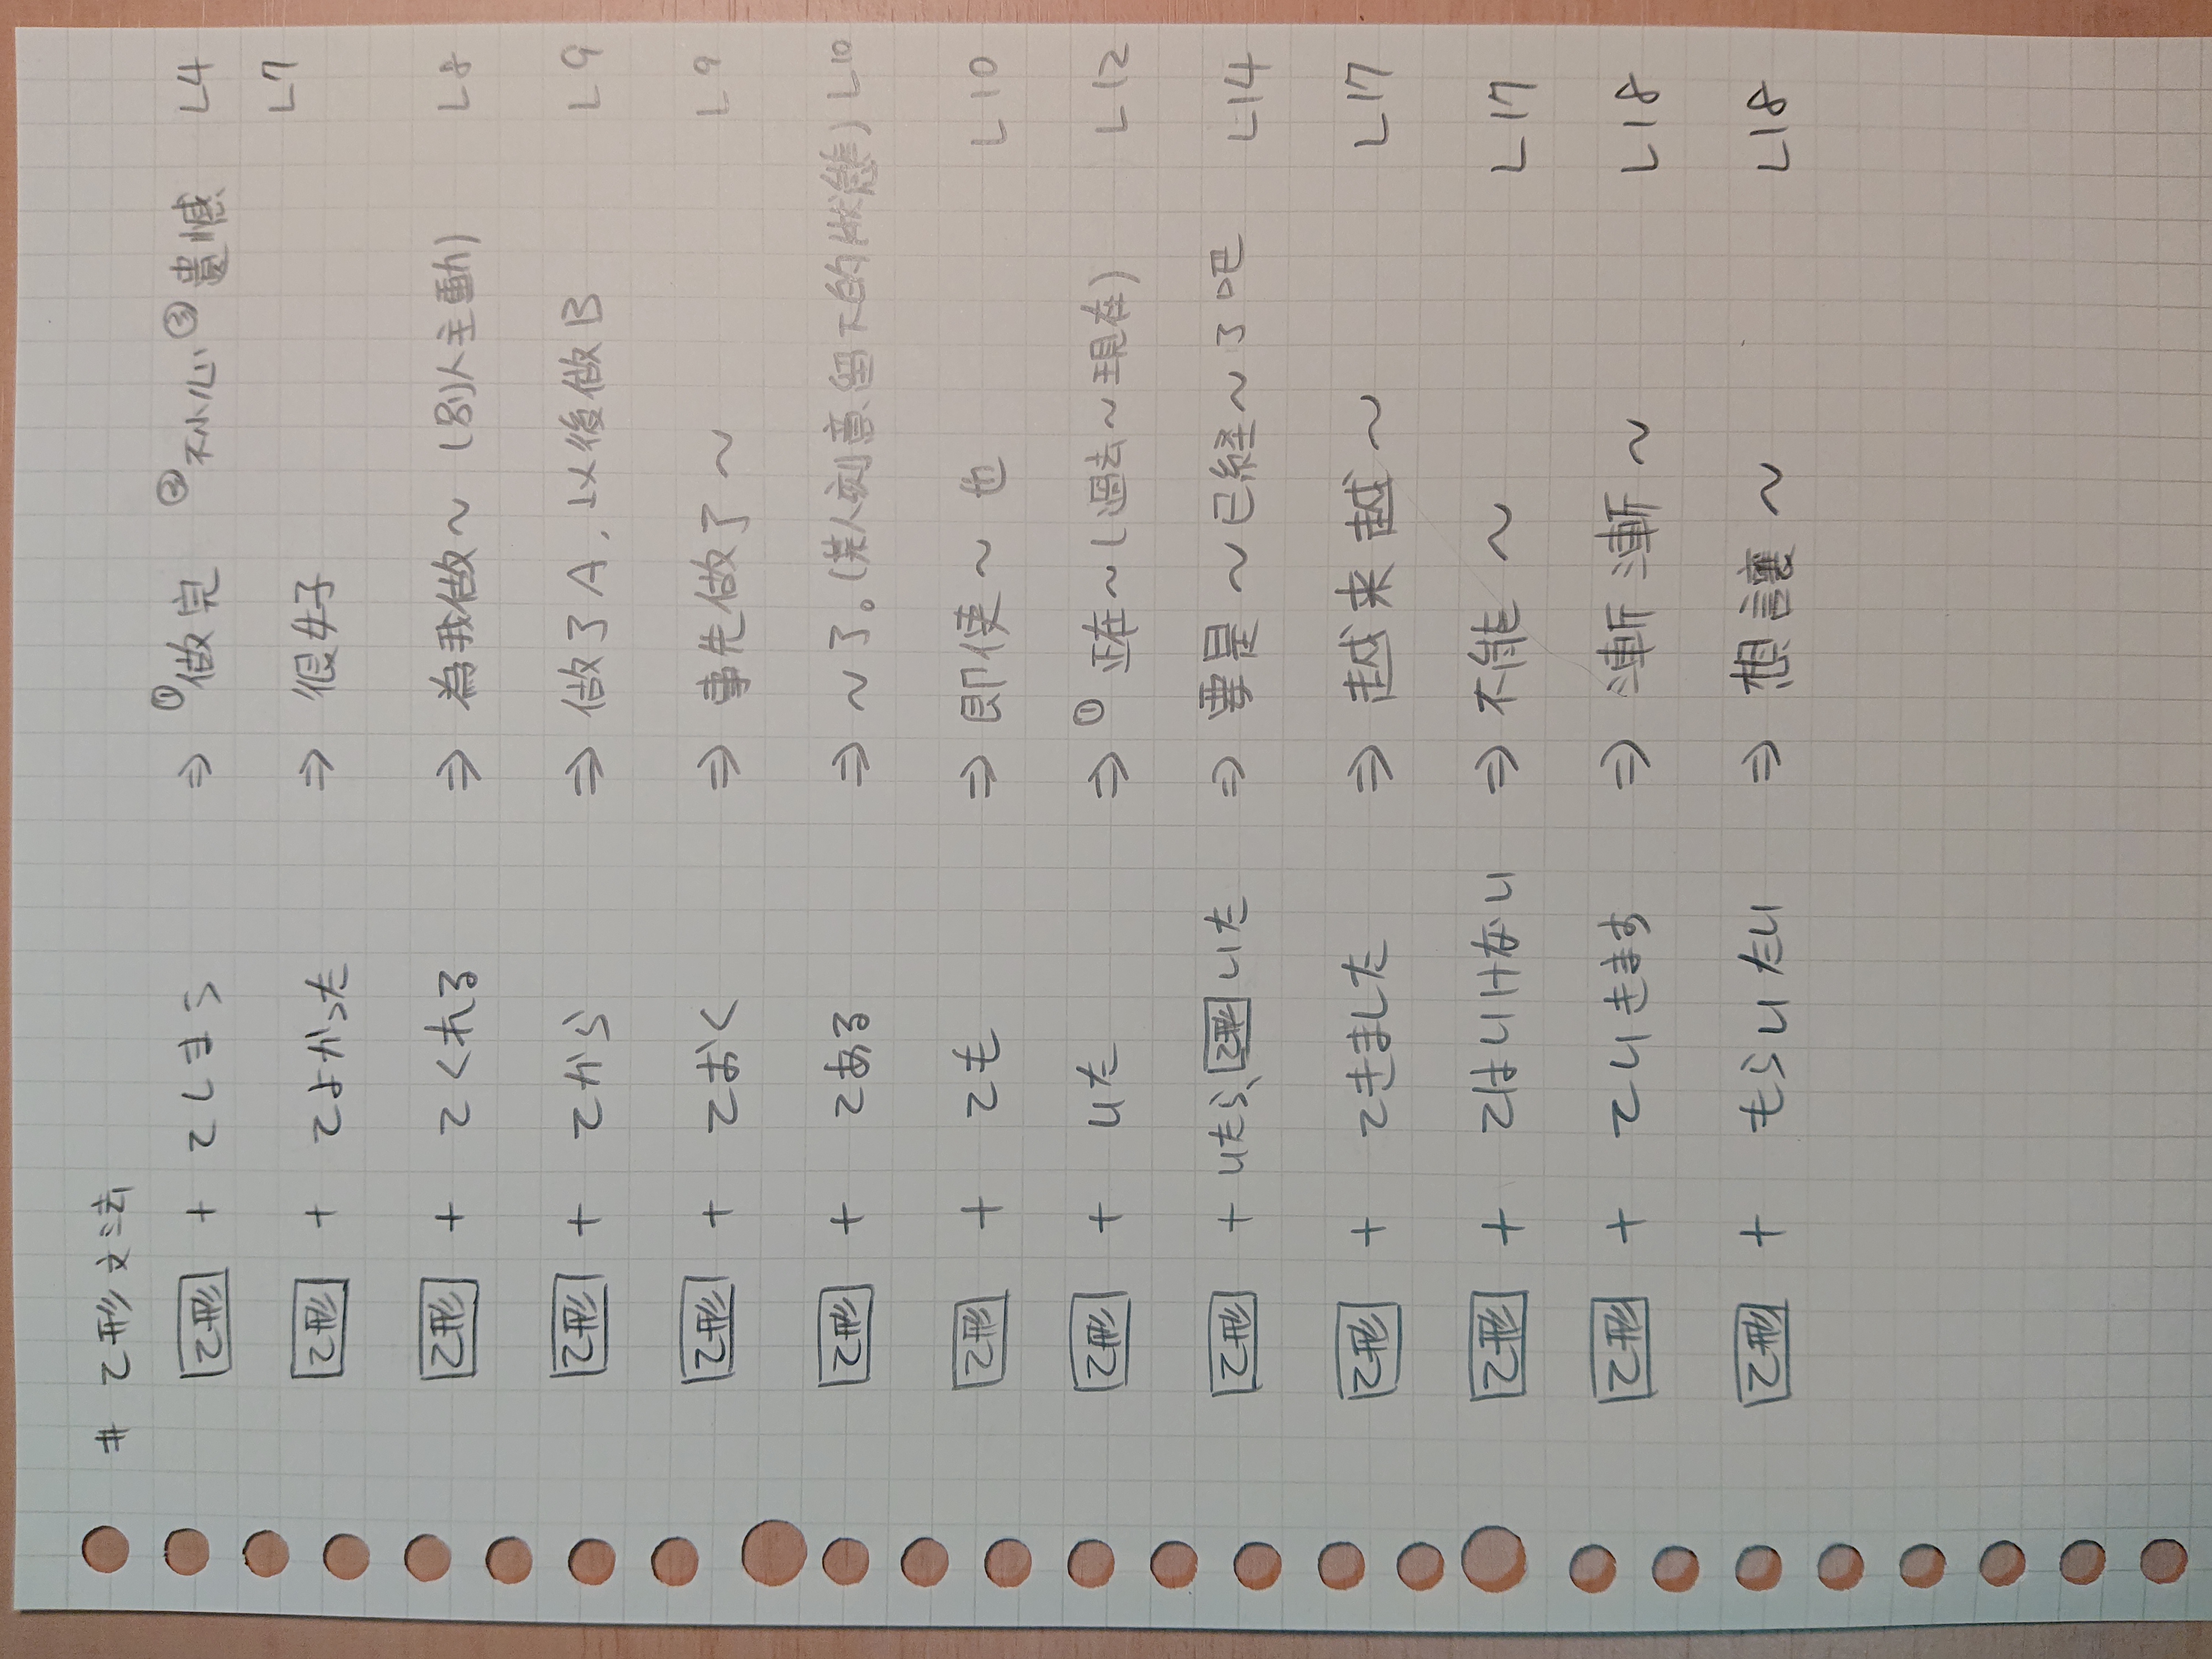 # て形文法
て形 + てしまう ⇒ ①做完 ②不小心 ③遺憾 L4
て形 + てよかった ⇒ 很好 L7
て形 + てくれる ⇒ 為我做～(別人主動) L8
て形 + てから ⇒ 做了A, 以後做B L9
て形 + ておく ⇒ 事先做了～ L9
て形 + てある ⇒ ～了。(某人刻意留下的狀態) L10
て形 + ても ⇒ 即使～也 L10
て形 + いた ⇒ ① 正在～(過去～現在) L12
て形 + いたら、て形いた ⇒ 要是～已経～了吧 L14
て形 + てきました ⇒ 越来越～ L17
て形 + てはいけない ⇒ 不能～ L17
て形 + ていきます ⇒ 漸漸～ L18
て形 + もらいたい ⇒ 想讓～ L18